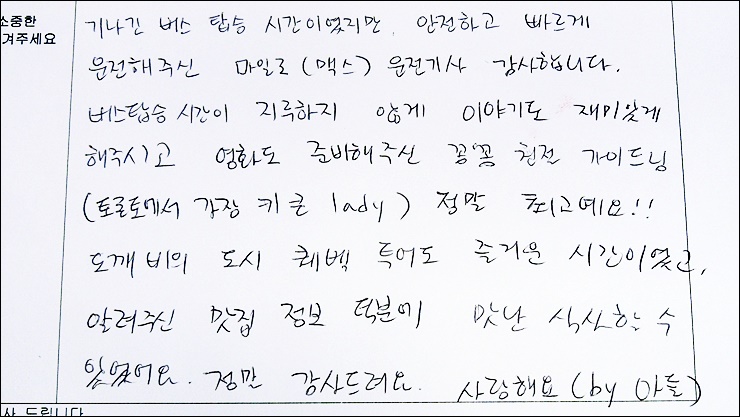 소중한
겨주세요
기나긴 버스 탑승 시간이였지만, 안전하고 빠르게
운전해주신 마일로(맥스) 운전기사 감사합니다.
버스탑승 시간이 지루하지 않게 이야기도 재미있게
해주시고 영화도 준비해주신 꽁꽁 친절 가이드님
(토론토에서 가장 키 큰 lady) 정말 최고예요!!
도깨비의 도시 퀘벡 투어도 즐거운 시간이였고,
알려주신 맛집 정보 덕분에 맛난 식사하는 수
있었어요. 정말 감사드려요. 사랑해요 (by 아들)
사 드립니다